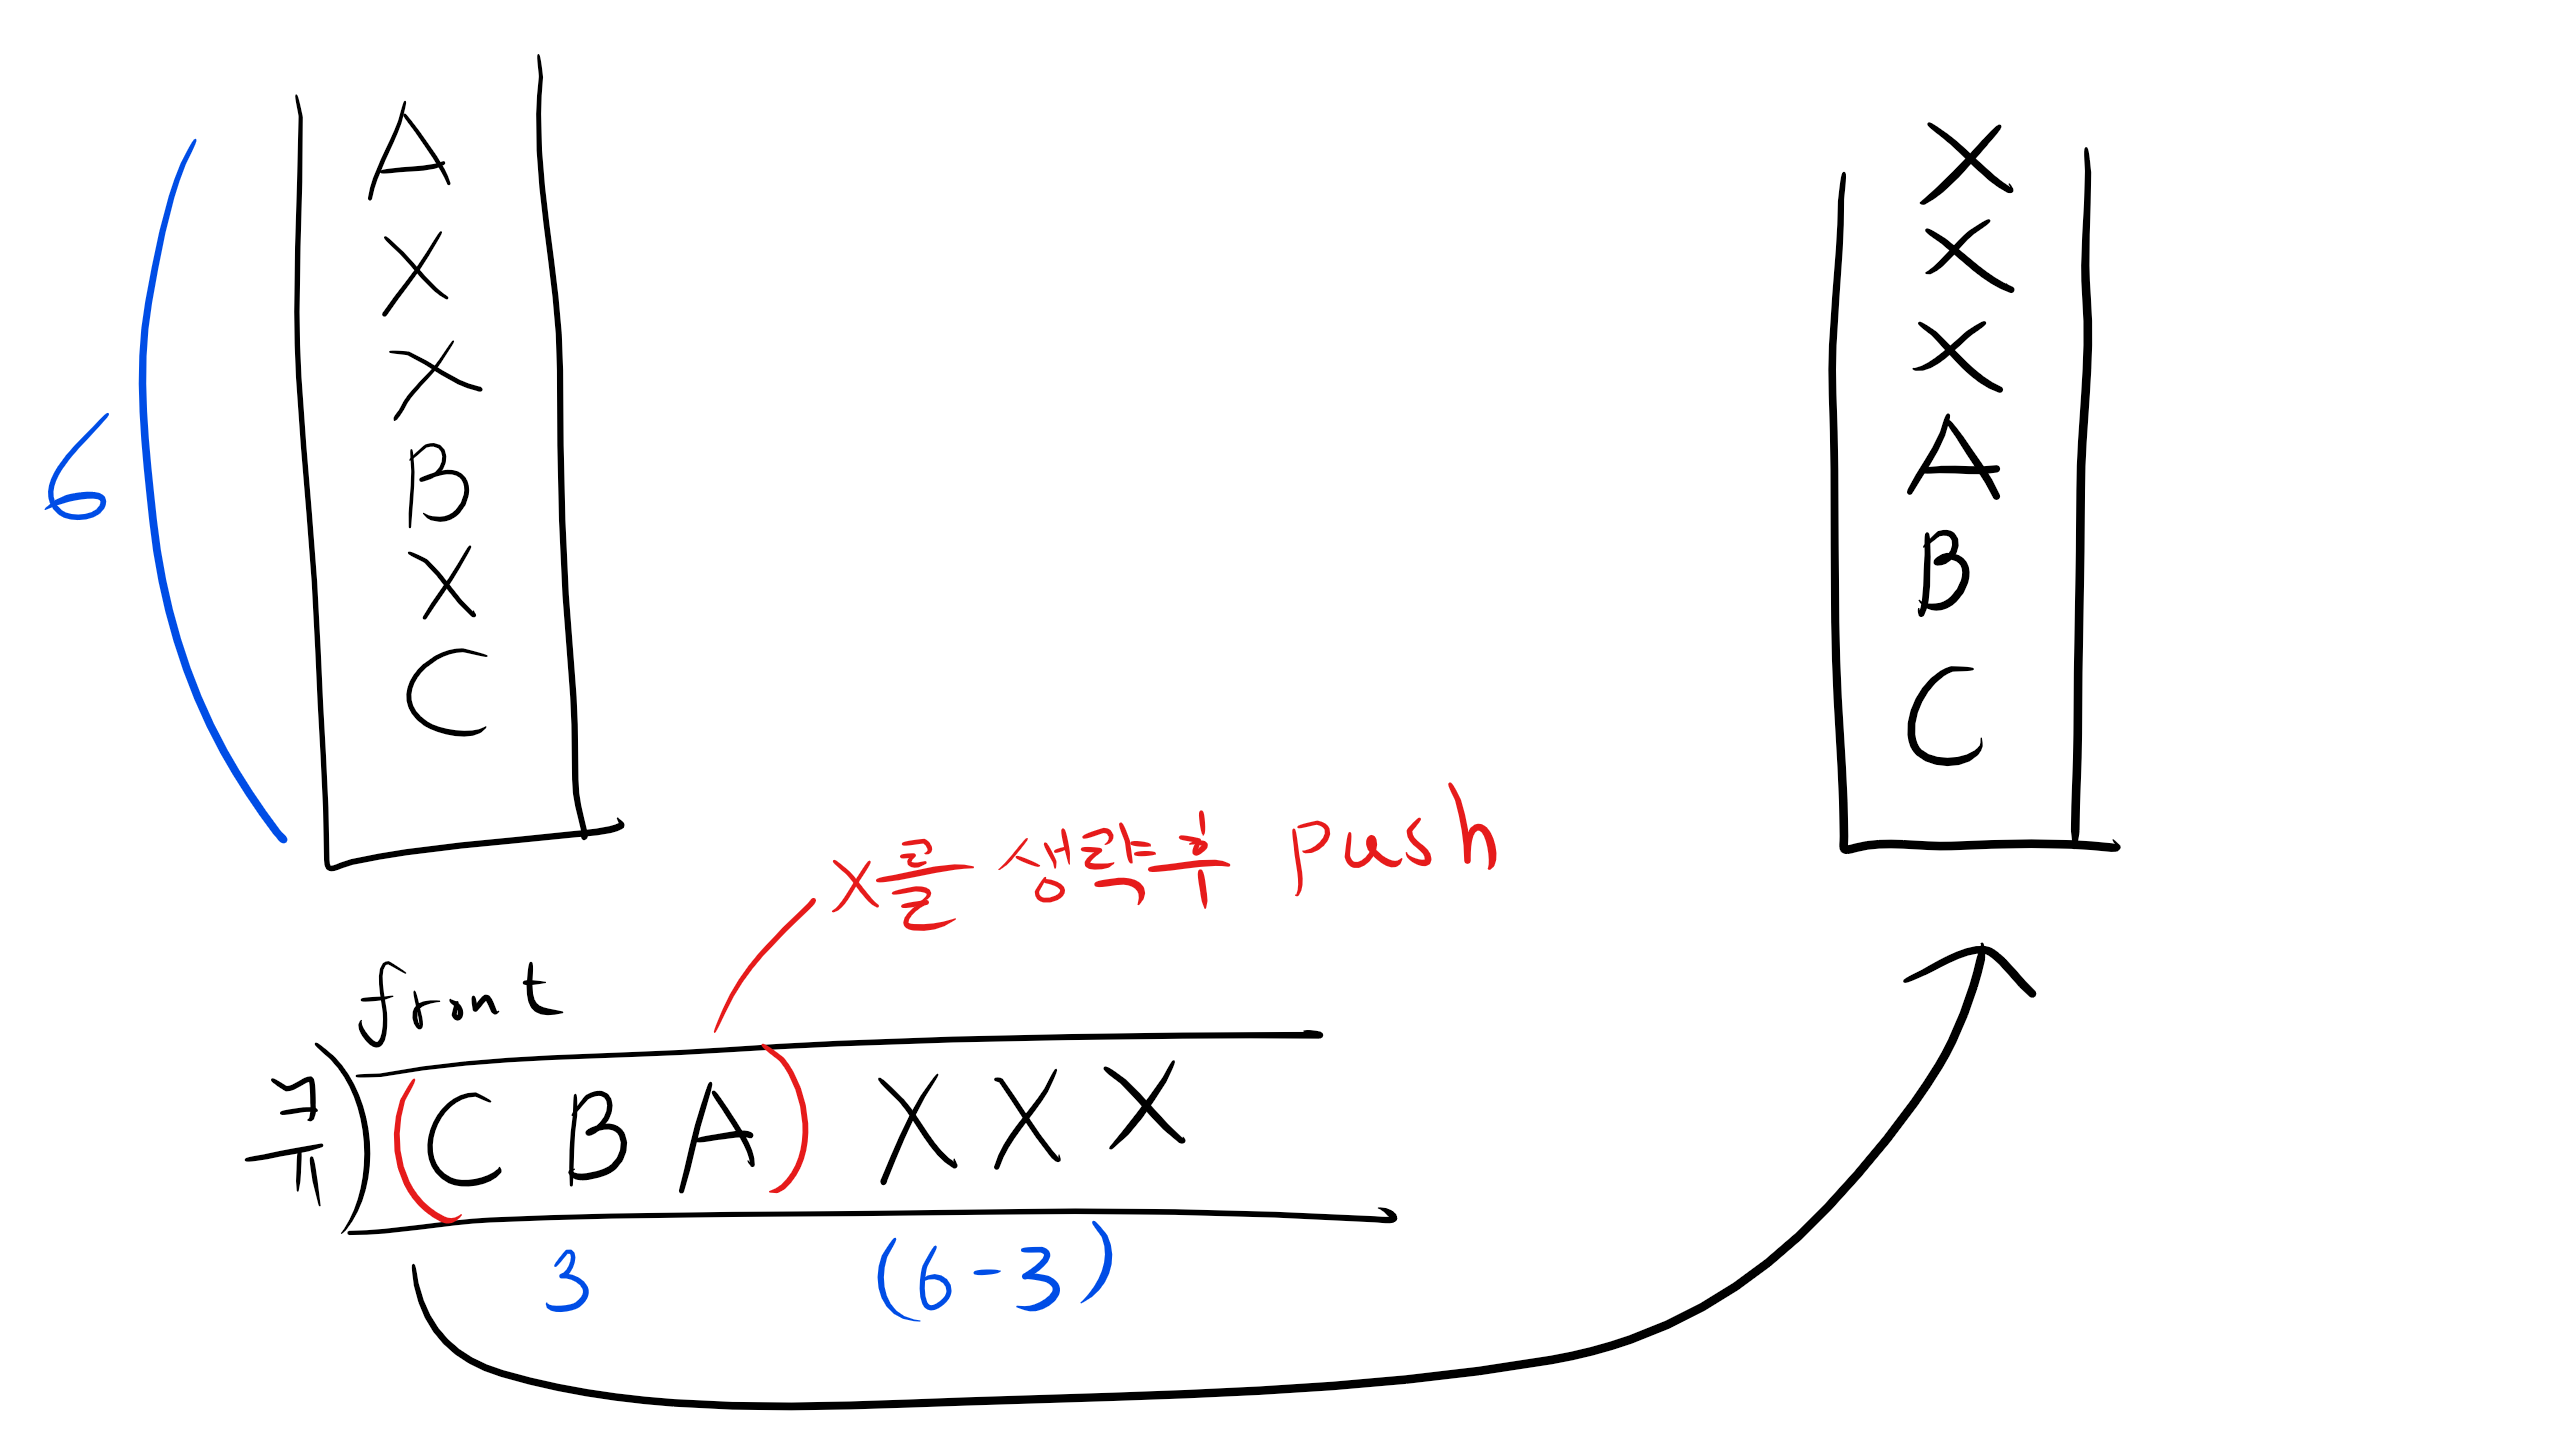 A
X
X
B
X
C
6
X
X
X
A
B
C
X를 생략후 push
front
큐
C B A X X X
3 (6-3)